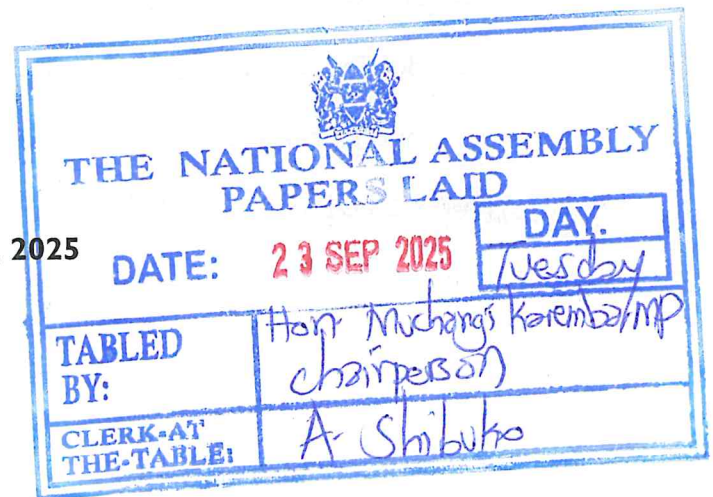 THE NATIONAL ASSEMBLY
PAPERS LAID
2025
DATE: 23 SEP 2025
DAY.
Tuesday
TABLED BY:
Hon. Muchangi Karemba, MP
chairperson
CLERK-AT THE-TABLE:
A. Shibuko